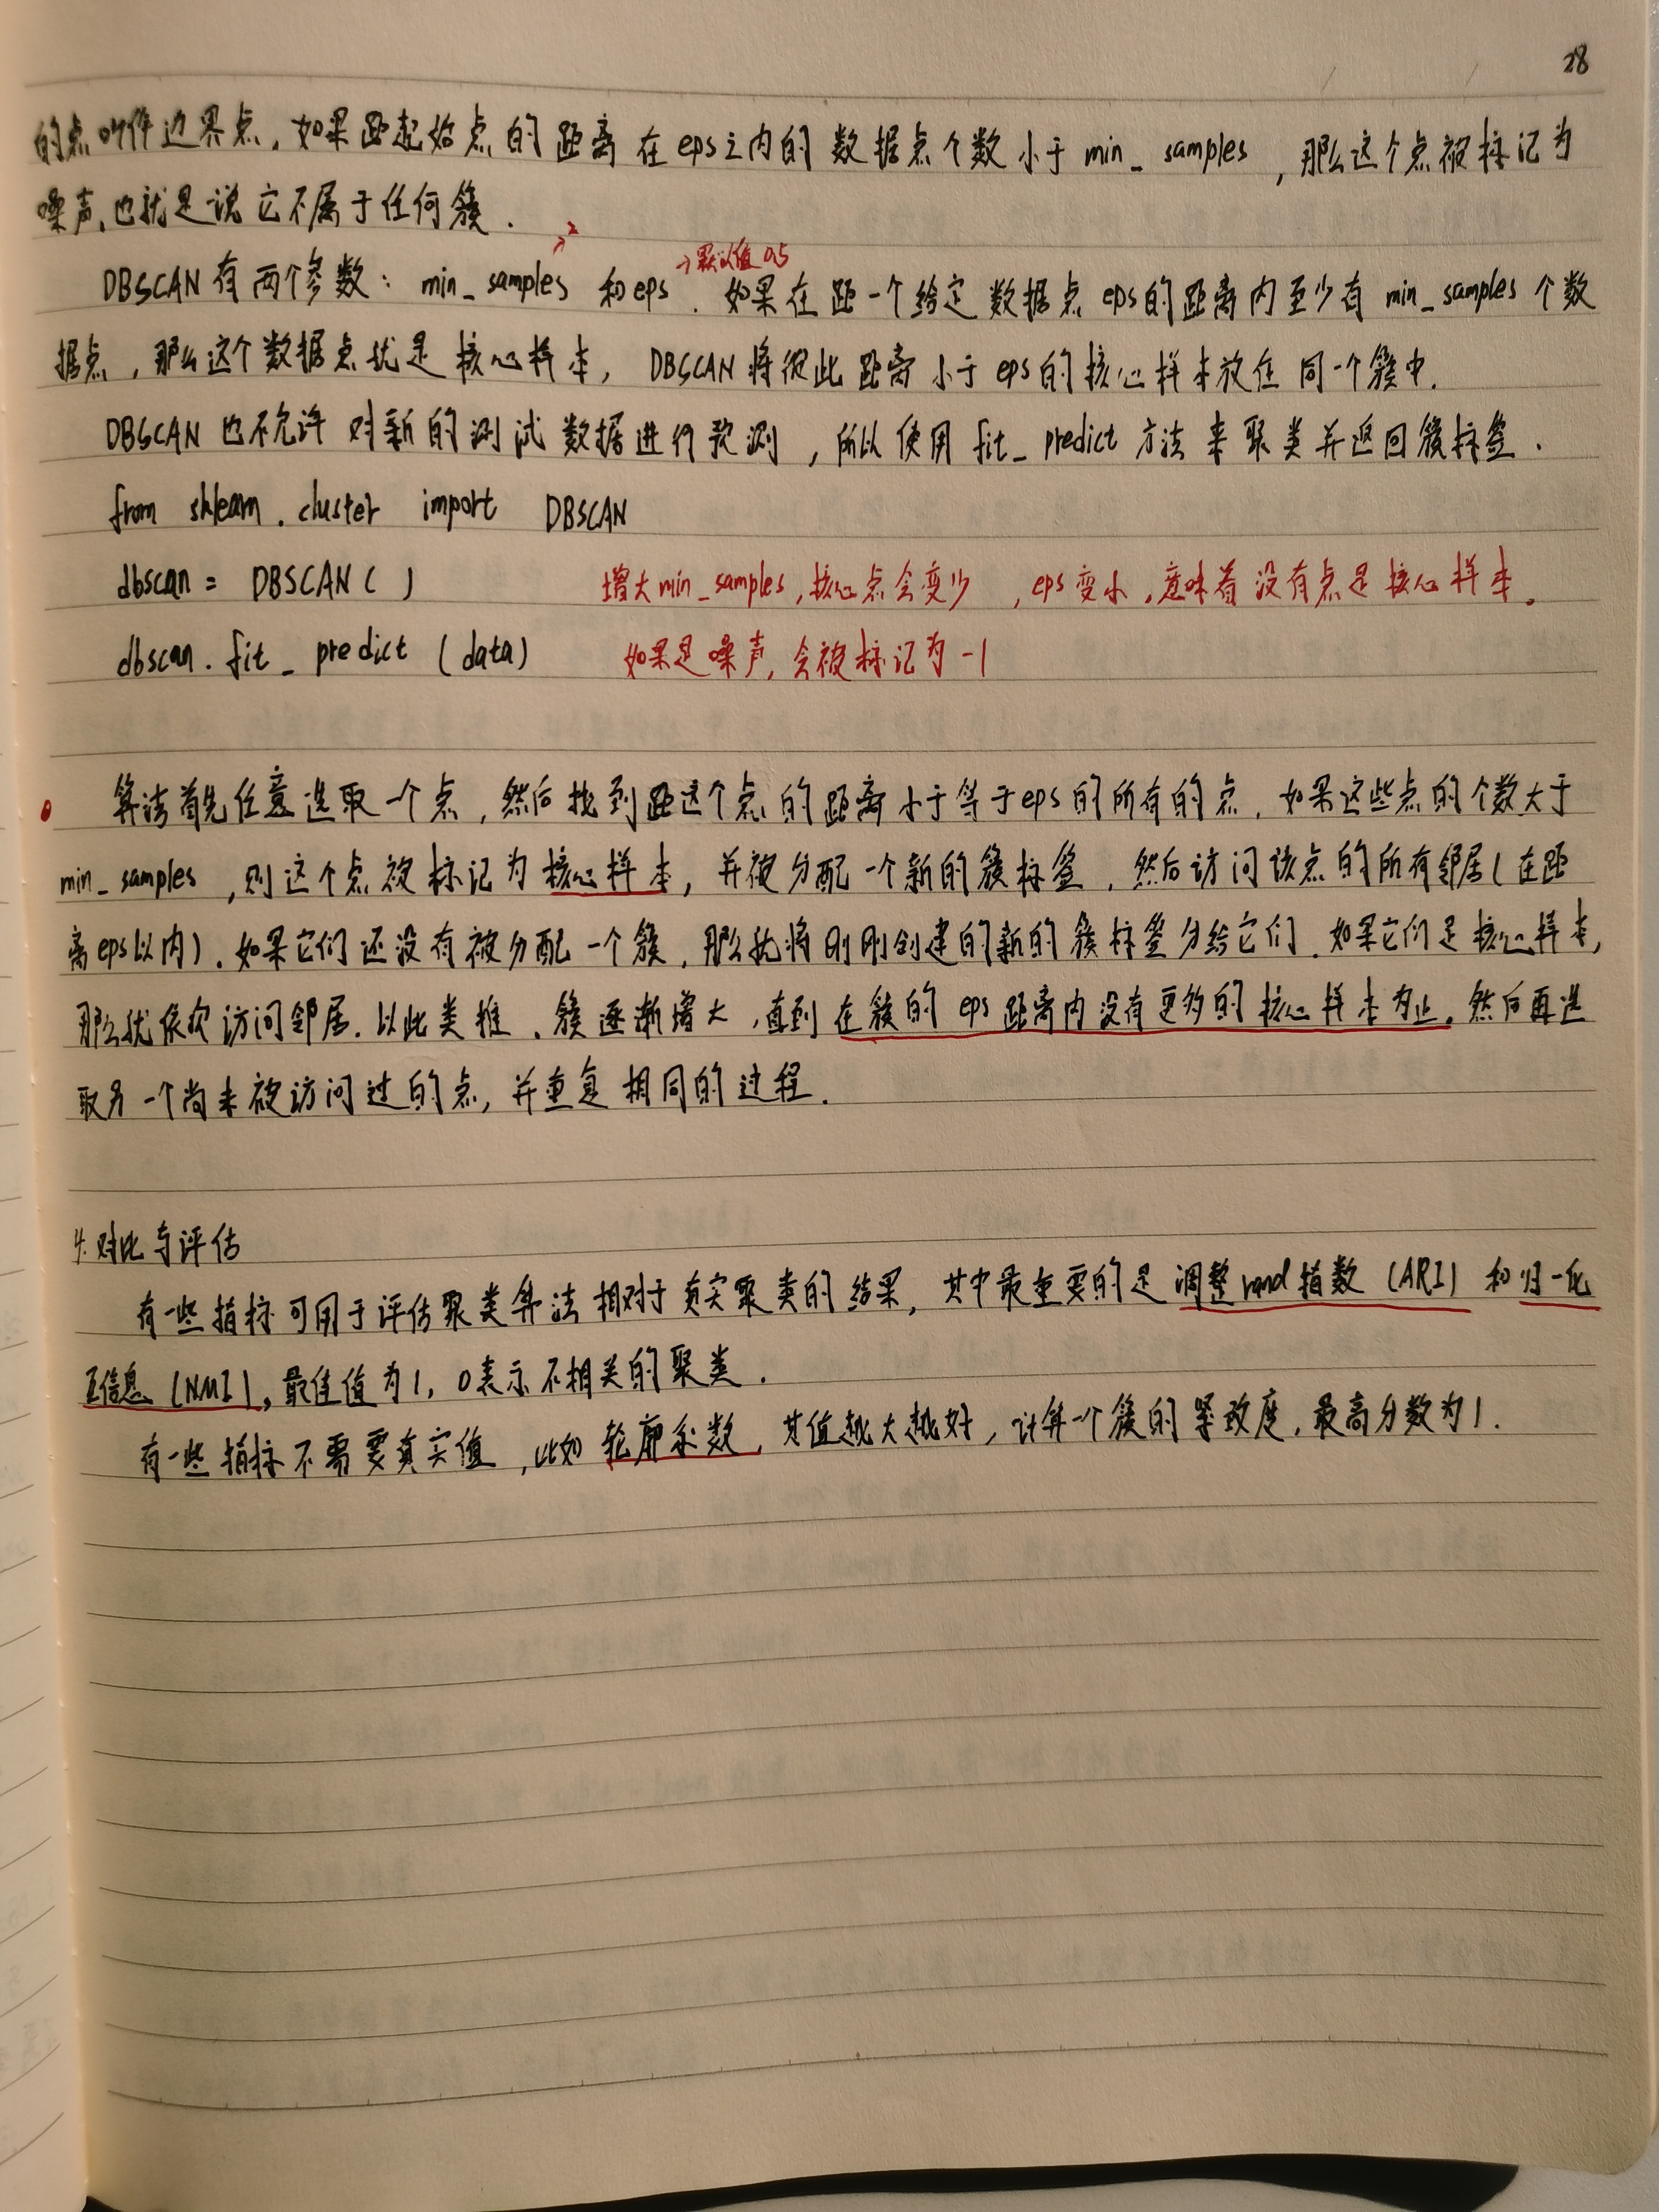 28
的点叫作边界点。如果距起始点的距离在eps之内的数据点个数小于min_samples,那么这个点被标记为
噪声,也就是说它不属于任何簇.
→2
→默认值0.5
DBSCAN有两个参数: min_samples 和eps. 如果在距一个给定数据点eps的距离内至少有min_samples个数
据点,那么这个数据点就是核心样本, DBSCAN将彼此距离小于eps的核心样本放在同一个簇中.
DBSCAN也不允许对新的测试数据进行预测,所以使用fit_predict方法来聚类并返回簇标签.
from sklearn.cluster import DBSCAN
dbscan = DBSCAN( ) 增大min_samples,核心点会变少,eps变小,意味着没有点是核心样本。
dbscan.fit_predict(data) 如果是噪声,会被标记为-1
算法首先任意选取一个点,然后找到距这个点的距离小于等于eps的所有的点.如果这些点的个数大于
min_samples,则这个点被标记为核心样本,并被分配一个新的簇标签.然后访问该点的所有邻居(在距
离eps以内).如果它们还没有被分配一个簇,那么就将刚刚创建的新的簇标签分给它们.如果它们是核心样本,
那么就依次访问邻居.以此类推.簇逐渐增大,直到在簇的eps距离内没有更多的核心样本为止.然后再选
取另一个尚未被访问过的点,并重复相同的过程.
4.对比与评估
有一些指标可用于评估聚类算法相对于真实聚类的结果,其中最重要的是调整rand指数(ARI)和归一化
互信息(NMI),最佳值为1,0表示不相关的聚类.
有一些指标不需要真实值,比如轮廓系数,其值越大越好,计算一个簇的紧致度,最高分数为1.